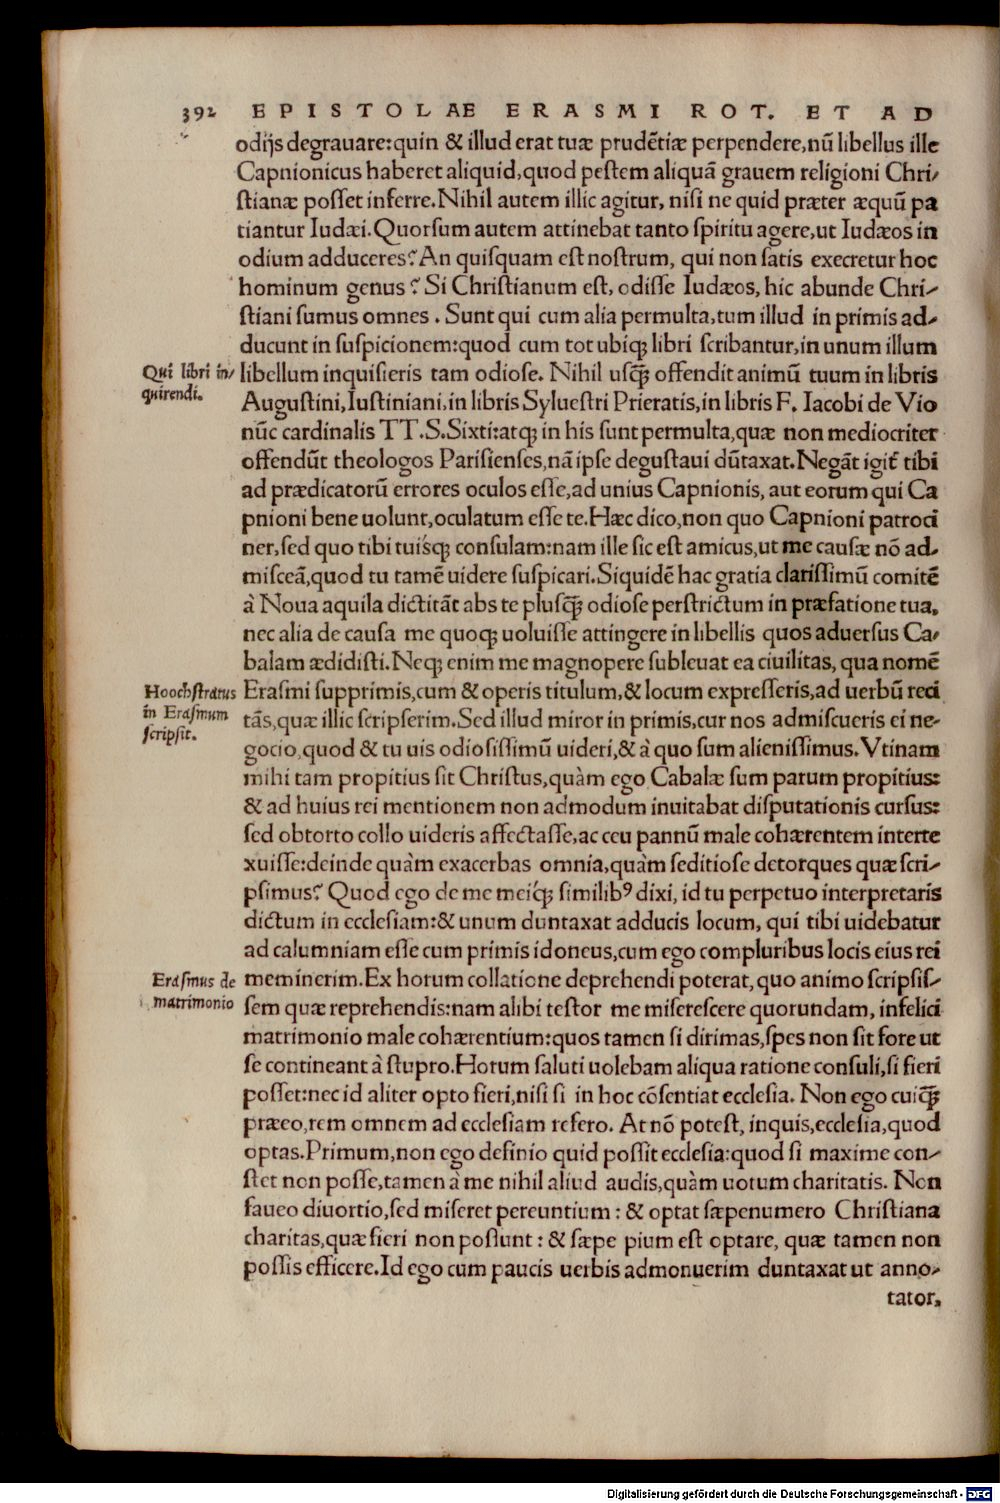 392 EPISTOLAE ERASMI ROT. ET AD
odijs degrauare:quin & illud erat tuæ prudẽtiæ perpendere,nũ libellus ille
Capnionicus haberet aliquid,quod pestem aliquã grauem religioni Chri/
stianæ posset inferre.Nihil autem illic agitur, nisi ne quid præter æquũ pa
tiantur Iudæi.Quorsum autem attinebat tanto spiritu agere,ut Iudæos in
odium adduceres? An quisquam est nostrum, qui non satis execretur hoc
hominum genus? Si Christianum est, odisse Iudæos, hic abunde Chri/
stiani sumus omnes. Sunt qui cum alia permulta,tum illud in primis ad/
ducunt in suspicionem:quod cum tot ubiqꝫ libri scribantur,in unum illum
Qui libri in/
quirendi.
libellum inquisieris tam odiose. Nihil usq̃ꝫ offendit animũ tuum in libris
Augustini,Iustiniani,in libris Syluestri Prieratis,in libris F. Iacobi de Vio
nũc cardinalis TT.S.Sixti:atqꝫ in his sunt permulta,quæ non mediocriter
offendũt theologos Parisienses,nã ipse degustaui dũtaxat.Negãt igit᷑ tibi
ad prædicatorũ errores oculos esse,ad unius Capnionis, aut eorum qui Ca
pnioni bene uolunt,oculatum esse te.Hæc dico,non quo Capnioni patroci
ner,sed quo tibi tuisqꝫ consulam:nam ille sic est amicus,ut me causæ nõ ad/
misceã,quod tu tamẽ uidere suspicari.Siquidẽ hac gratia clarissimũ comitẽ
à Noua aquila dictitãt abs te plusq̃ꝫ odiose perstrictum in præfatione tua,
nec alia de causa me quoqꝫ uoluisse attingere in libellis quos aduersus Ca/
balam ædidisti.Neqꝫ enim me magnopere subleuat ea ciuilitas, qua nomẽ
Hoochstratus
in Erasmum
scripsit.
Erasmi supprimis,cum & operis titulum,& locum expresseris,ad uerbũ reci
tãs,quæ illic scripserim.Sed illud miror in primis,cur nos admiscueris ei ne/
gocio,quod & tu uis odiosissimũ uideri,& à quo sum alienissimus.Vtinam
mihi tam propitius sit Christus,quàm ego Cabalæ sum parum propitius:
& ad huius rei mentionem non admodum inuitabat disputationis cursus:
sed obtorto collo uideris affectasse,ac ceu pannũ male cohærentem interte
xuisse:deinde quàm exacerbas omnia,quàm seditiose detorques quæ scri/
psimus? Quod ego de me meiq̃ꝫ similibꝰ dixi, id tu perpetuo interpretaris
dictum in ecclesiam:& unum duntaxat adducis locum, qui tibi uidebatur
ad calumniam esse cum primis idoneus,cum ego compluribus locis eius rei
Erasmus de
matrimonio
meminerim.Ex horum collatione deprehendi poterat,quo animo scripsis/
sem quæ reprehendis:nam alibi testor me miserescere quorundam, infelici
matrimonio male cohærentium:quos tamen si dirimas,spes non sit fore ut
se contineant à stupro.Horum saluti uolebam aliqua ratione consuli,si fieri
posset:nec id aliter opto fieri,nisi si in hoc cõsentiat ecclesia. Non ego cuiq̃ꝫ
præeo,rem omnem ad ecclesiam refero. At nõ potest, inquis,ecclesia,quod
optas.Primum,non ego definio quid possit ecclesia:quod si maxime con/
stet non posse,tamen à me nihil aliud audis,quàm uotum charitatis. Non
faueo diuortio,sed miseret pereuntium: & optat sæpenumero Christiana
charitas,quæ fieri non possunt: & sæpe pium est optare, quæ tamen non
possis efficere.Id ego cum paucis uerbis admonuerim duntaxat ut anno/
tator,
Digitalisierung gefördert durch die Deutsche Forschungsgemeinschaft - DFG